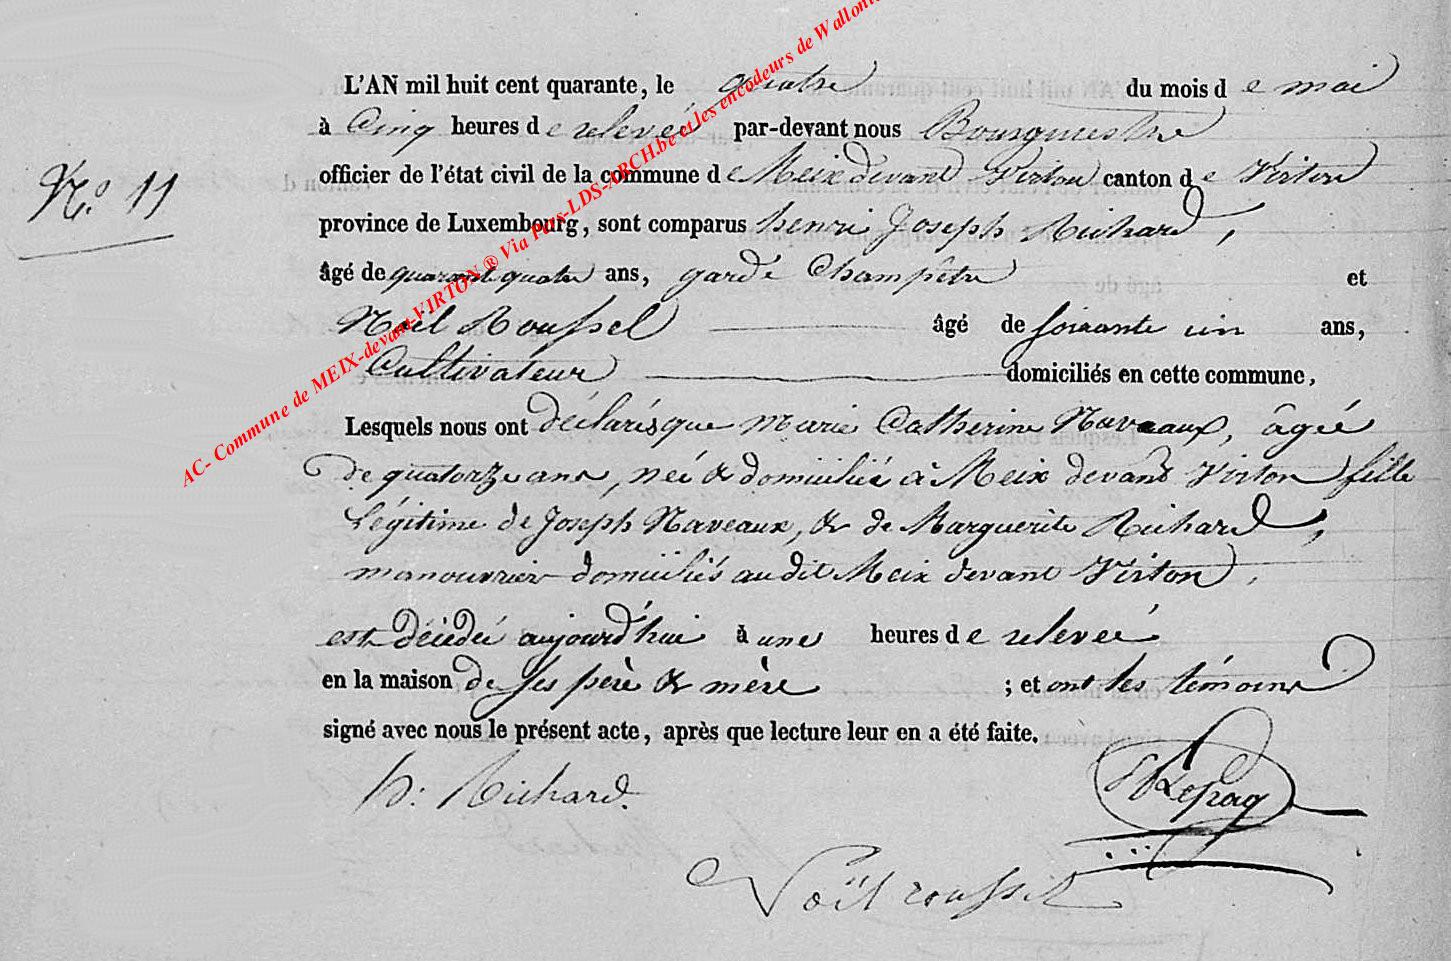 L'AN mil huit cent quarante, le quatre du mois de mai
à Cinq heures de relevée par-devant nous Bourguestre
officier de l'état civil de la commune de Meix devant Virton canton de Virton
N.° 11
province de Luxembourg, sont comparus henri Joseph Richard,
âgé de quarante quatre ans, garde Champêtre et
Noel Roussel âgé de soixante un ans,
Cultivateur domiciliés en cette commune,
Lesquels nous ont déclarés que Marie Catherine Naveaux, âgée
de quatorze ans, née & domiciliée à Meix devant Virton fille
Légitime de Joseph Naveaux, & de Marguerite Richard,
manouvrier domiciliés audit Meix devant Virton,
est décédée aujourd'hui à une heures de relevée
en la maison de ses père & mère ; et ont les témoins
signé avec nous le présent acte, après que lecture leur en a été faite.
h: Richard.
Noël roussel
AC- Commune de MEIX-devant-VIRTON ® Via Pars-LDS-ARCH.be et les encodeurs de Wallonie